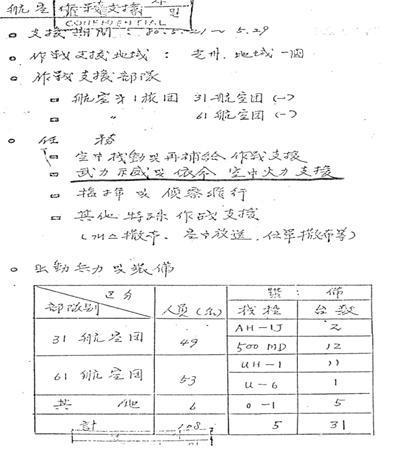 航空 作戰支援
CONFIDENTIAL
○ 支援期間 : 80.5.21 ~ 5.29
○ 作戰支援地域 : 光州 地域 一圓
○ 作戰支援部隊
航空 第1旅団 31 航空団 (-)
〃 61 航空団 (-)
○ 任 務
空中機動 및 再補給 作戰支援
武力示威 및 依命 空中火力支援
指揮 및 偵察飛行
其他 特殊 作戰支援
(개스撒布, 空中放送, 伝單撒布等)
○ 出動兵力 및 裝備
区分 裝 備
部隊別 人員 (名) 機種 台数
31 航空団 49 AH-1J 2
500 MD 12
61 航空団 53 UH-1 11
U-6 1
其 他 6 O-1 5
計 108 5 31